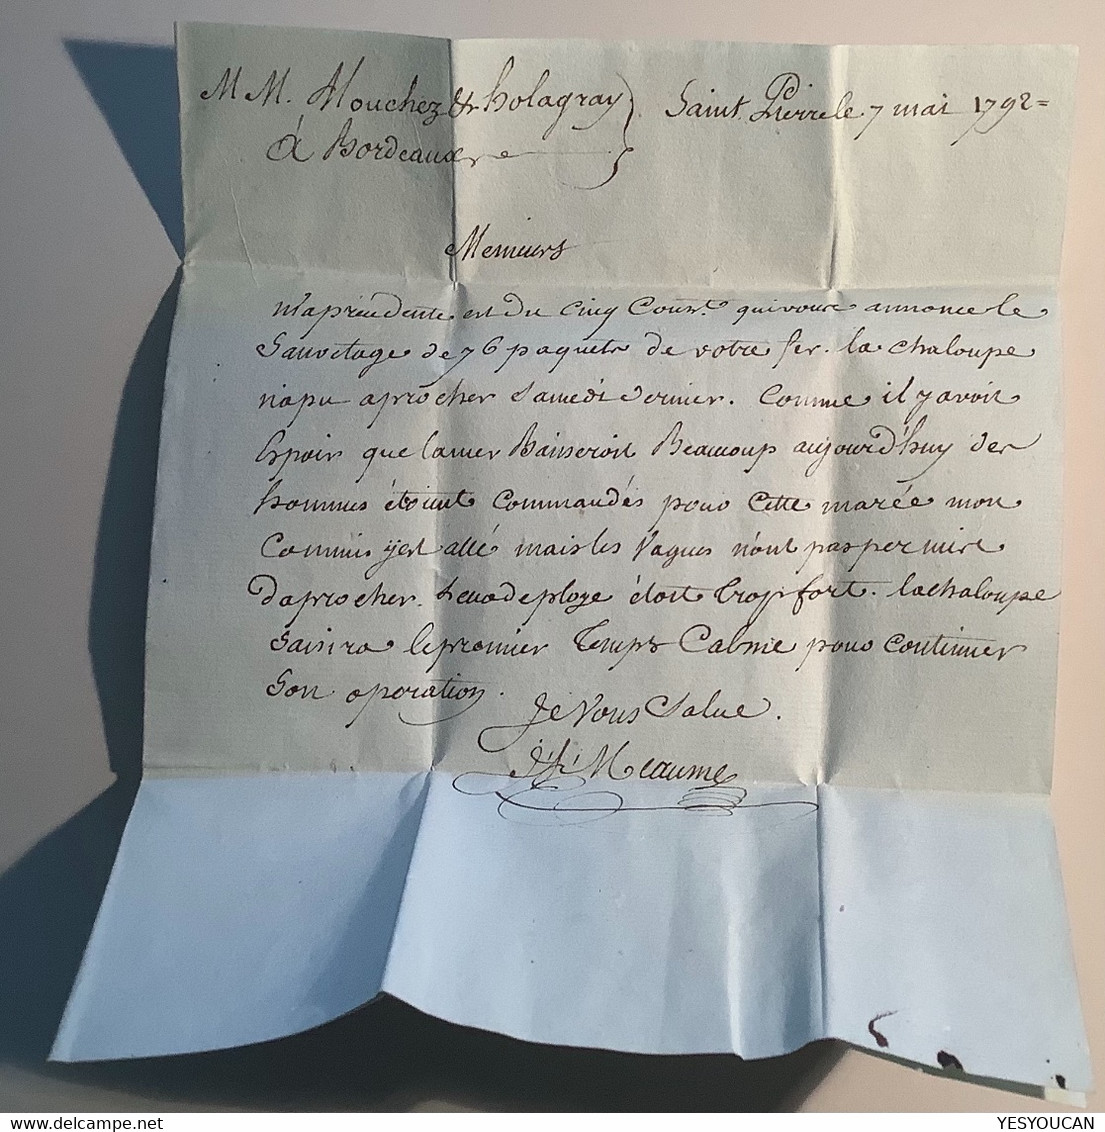 M M. Mouchez & holagray Saint Pierre le 7 mai 1792=
à Bordeaux
Messieurs
Ma précédente est du Cinq Cour.t qui vous annonce le
Sauvetage de 76 paquets de votre fer. la chaloupe
n'a pu aprocher Samedi dernier. Comme il y avoit
Espoir que la mer Baisseroit Beaucoup aujourd'huy des
hommes étoient Commandés pour Cette marée mon
Commis y est allé mais les Vagues n'ont pas permis
d'aprocher. étoit trop fort. la chaloupe
Saisira le premier temps Calme pour Continuer
Son operation.
Je Vous Salue.
Meaume
YESYOUCAN